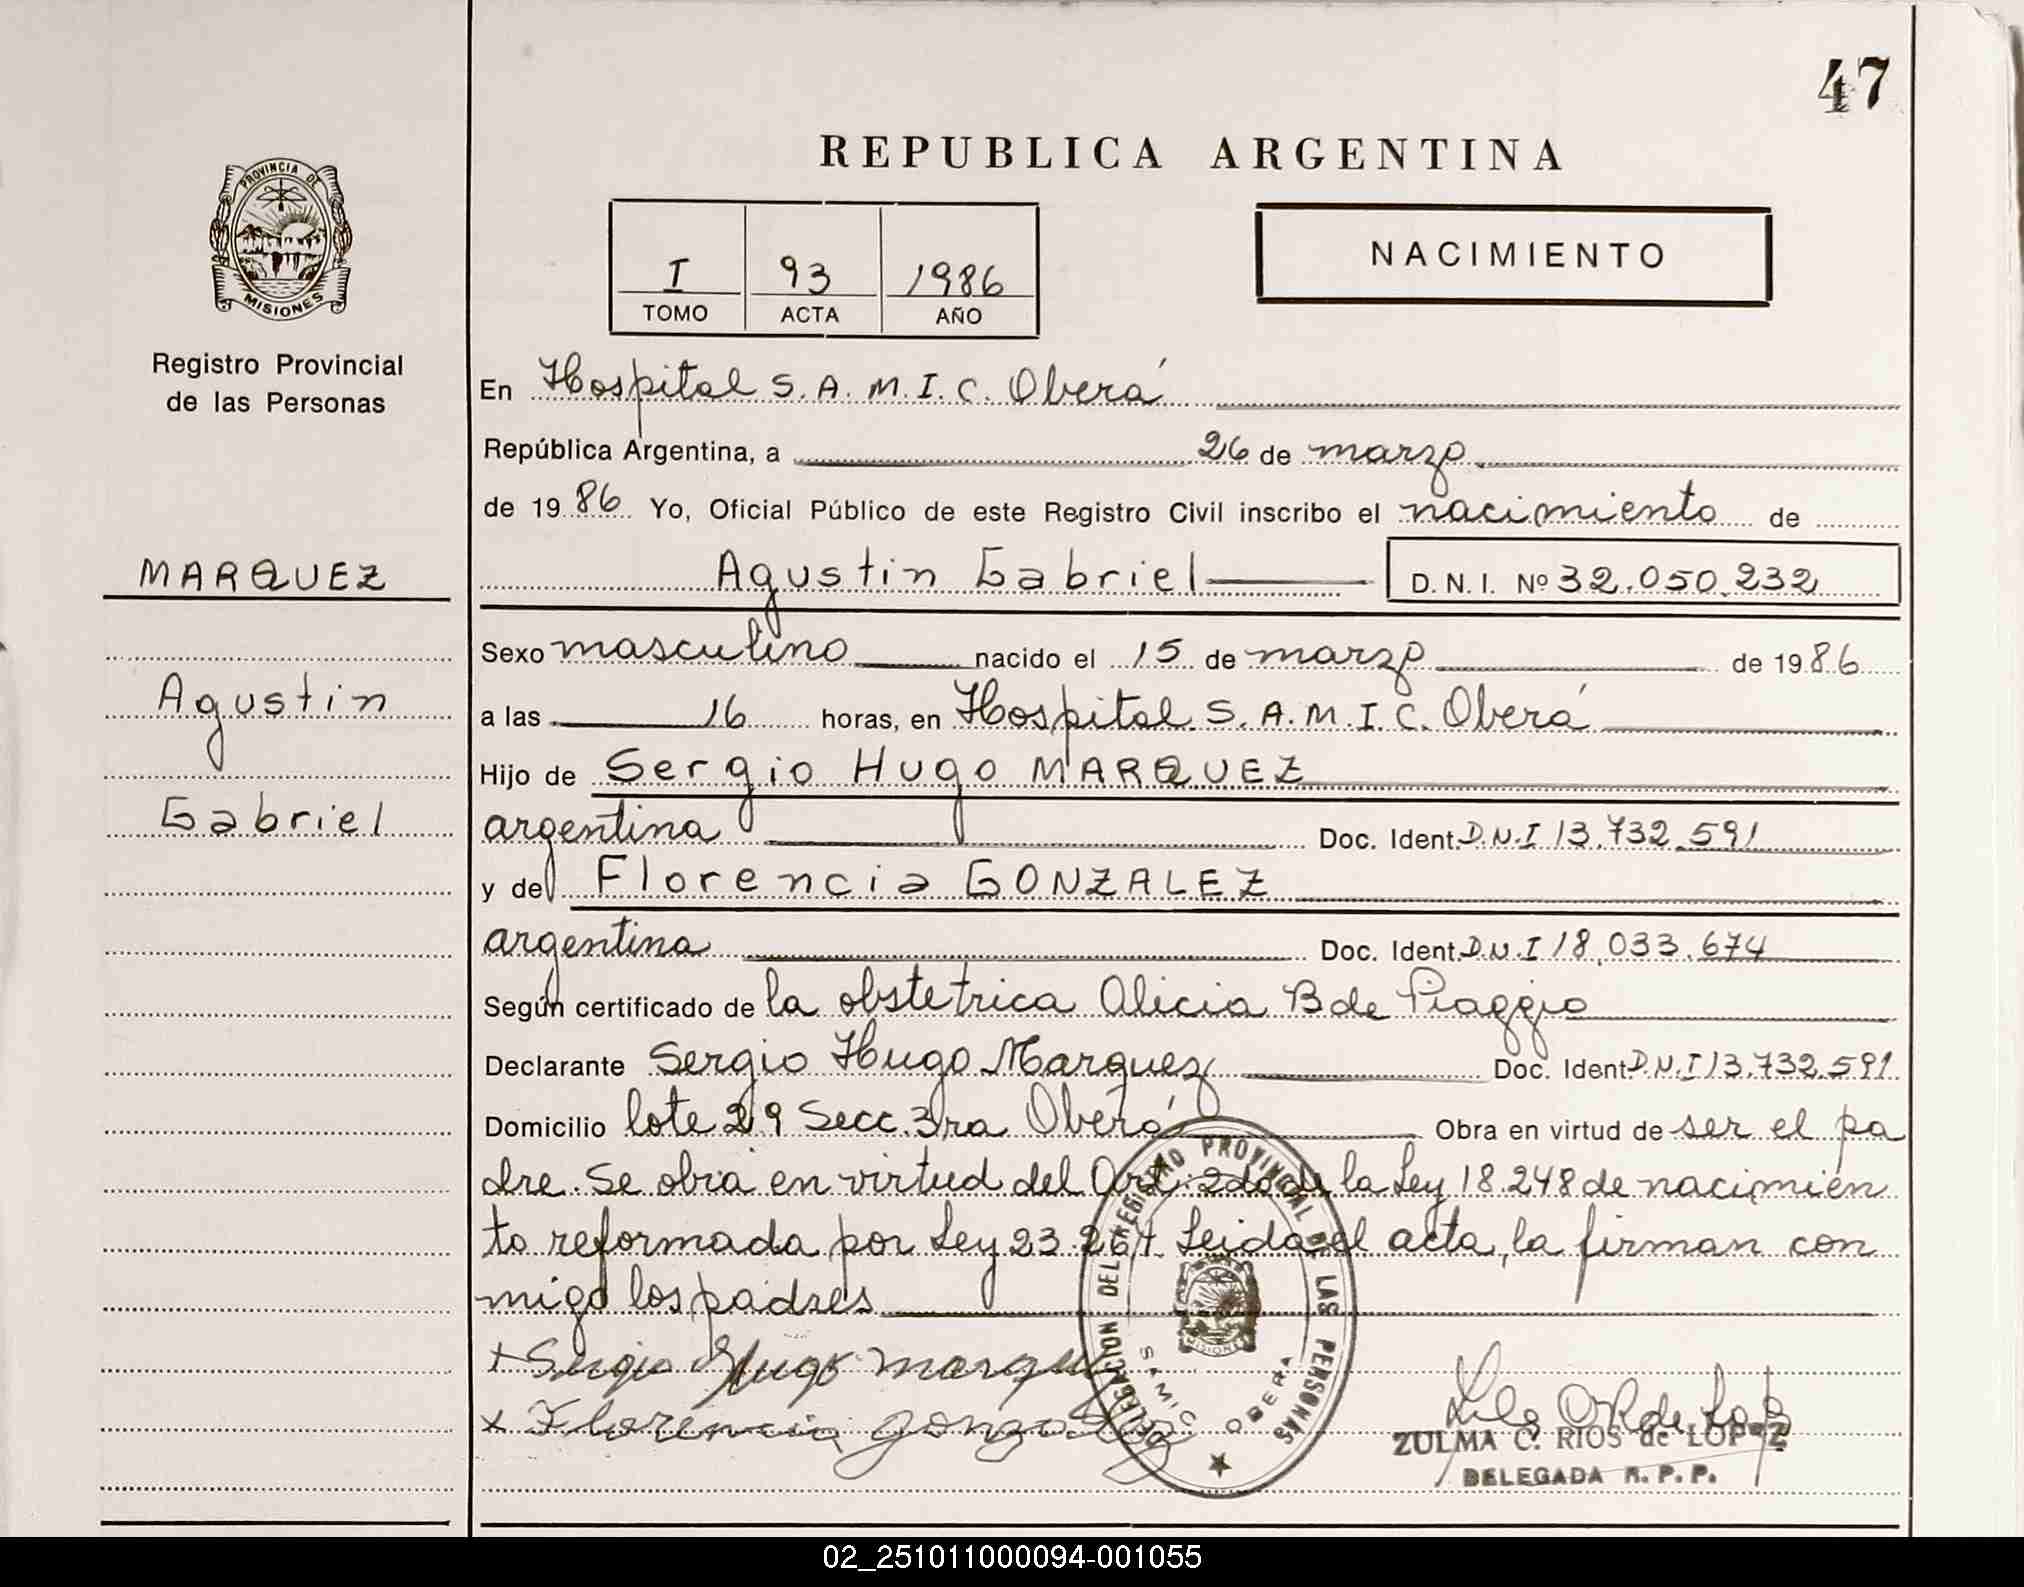 47
REPUBLICA ARGENTINA
PROVINCIA DE
MISIONES
Registro Provincial
de las Personas
I 93 1986
TOMO ACTA AÑO
NACIMIENTO
En Hospital S.A.M.I.C. Oberá
República Argentina, a 26 de marzo
de 1986 Yo, Oficial Público de este Registro Civil inscribo el nacimiento de
MARQUEZ
Agustin Gabriel D.N.I. Nº 32.050.232
Sexo masculino nacido el 15 de marzo de 1986
Agustin
a las 16 horas, en Hospital S.A.M.I.C. Oberá
Hijo de Sergio Hugo MARQUEZ
Gabriel
argentina Doc. Ident. D.N.I 13.732.591
y de Florencia GONZALEZ
argentina Doc. Ident. D.N.I 18.033.674
Según certificado de la obstetrica Alicia B de Piaggio
Declarante Sergio Hugo Marquez Doc. Ident D.N.I 13.732.591
Domicilio lote 29 Secc. 3ra Oberá Obra en virtud de ser el pa
dre. Se obra en virtud del Art. 2do de la Ley 18.248 de nacimien
to reformada por Ley 23.264 Leida el acta, la firman con
migo los padres
+ Sergio Hugo Marquez
x Florencia Gonzalez
DELEGACION DEL REGISTRO PROVINCIAL DE LAS PERSONAS
MISIONES
SAMIC OBERA
ZULMA C. RIOS de LOPEZ
DELEGADA R.P.P.
02_251011000094-001055